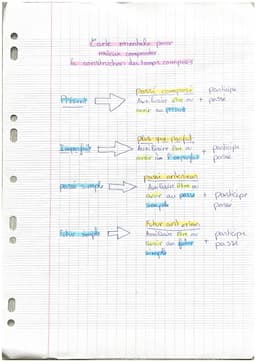 Carte mentale pour
mieux comprendre
la construction des temps composés
Présent
passé composé
Auxiliaire être ou
avoir au présent
+
participe
passé
Imparfait
plus que parfait
Auxiliaire être ou
avoir à l'imparfait
+
participe
passé
passé simple
passé antérieur
Auxiliaire être ou
avoir au passé
simple
+
participe
passé
Futur simple
Futur antérieur
Auxiliaire être ou
avoir au futur
simple
+
participe
passé